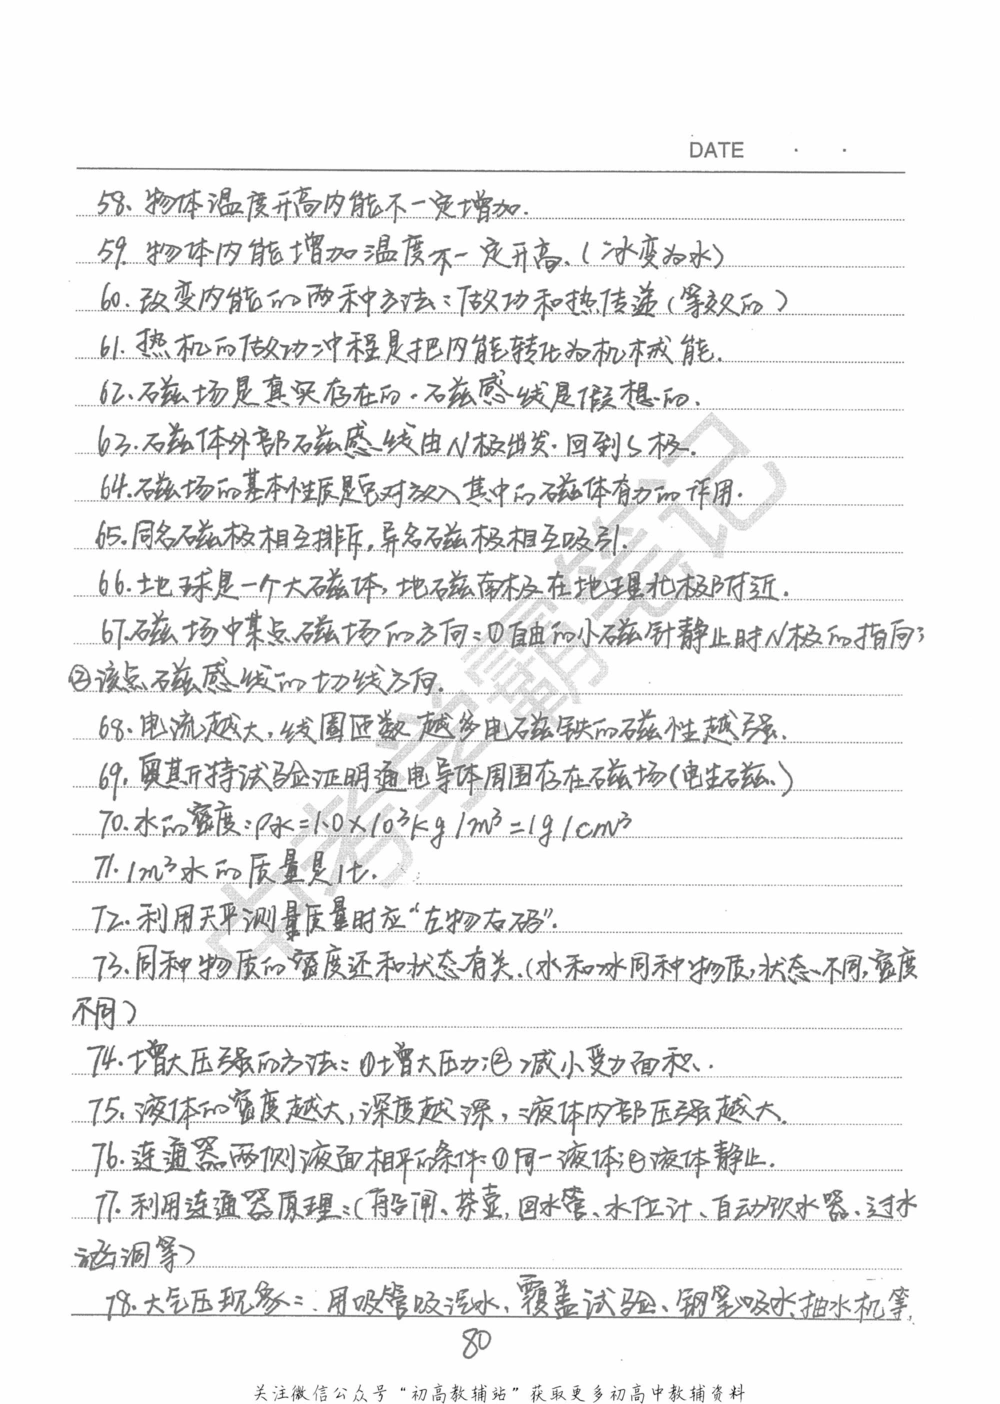 DATE · ·
58. 物体温度升高内能不一定增加.
59. 物体内能增加温度不一定升高.(冰变为水)
60. 改变内能的两种方法:做功和热传递(等效的)
61. 热机的做功冲程是把内能转化为机械能.
62. 磁场是真实存在的.磁感线是假想的.
63. 磁体外部磁感线由N极出发.回到S极.
64. 磁场的基本性质是它对放入其中的磁体有力的作用.
65. 同名磁极相互排斥,异名磁极相互吸引.
66. 地球是一个大磁体,地磁南极在地理北极附近.
67. 磁场中某点磁场的方向:①自由的小磁针静止时N极的指向;
②该点磁感线的切线方向.
68. 电流越大,线圈匝数越多电磁铁的磁性越强.
69. 奥斯特试验证明通电导体周围存在磁场(电生磁.)
70. 水的密度:ρ水=1.0×10³kg/m³=1g/cm³
71. 1m³水的质量是1t.
72. 利用天平测量质量时应"左物右码".
73. 同种物质的密度还和状态有关.(水和冰同种物质,状态不同,密度
不同)
74. 增大压强的方法:①增大压力②减小受力面积.
75. 液体的密度越大,深度越深,液体内部压强越大.
76. 连通器两侧液面相平的条件:①同一液体②液体静止.
77. 利用连通器原理:(船闸、茶壶,回水管、水位计、自动饮水器、过水
涵洞等)
78. 大气压现象:用吸管吸汽水、覆盖试验、钢笔吸水、抽水机等,
80
关注微信公众号"初高教辅站"获取更多初高中教辅资料
中考学霸笔记